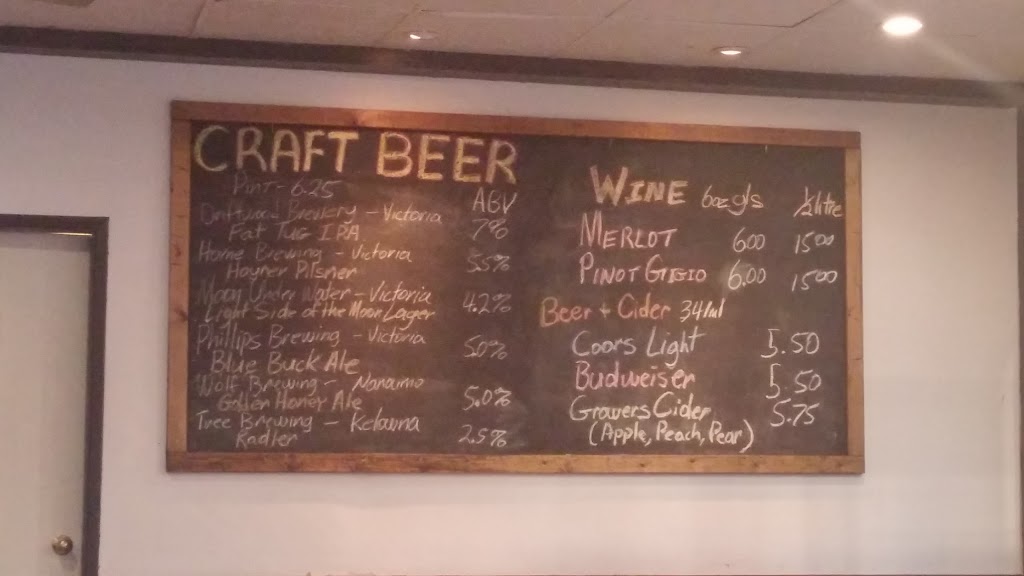 CRAFT BEER
Pint - 6.25 ABV
Driftwood Brewery - Victoria 7%
Fat Tug IPA
Hoyne Brewing - Victoria 5.5%
Hoyner Pilsner
Moon Under Water - Victoria 4.2%
Light Side of the Moon Lager
Phillips Brewing - Victoria 5.0%
Blue Buck Ale
Wolf Brewing - Nanaimo
Golden Honey Ale 5.0%
Tree Brewing - Kelowna
Radler 2.5%
WINE 6oz gls ½ litre
MERLOT 6.00 15.00
PINOT GIGIO 6.00 15.00
Beer + Cider 341ml
Coors Light 5.50
Budweiser 5.50
Growers Cider 5.75
(Apple, Peach, Pear)